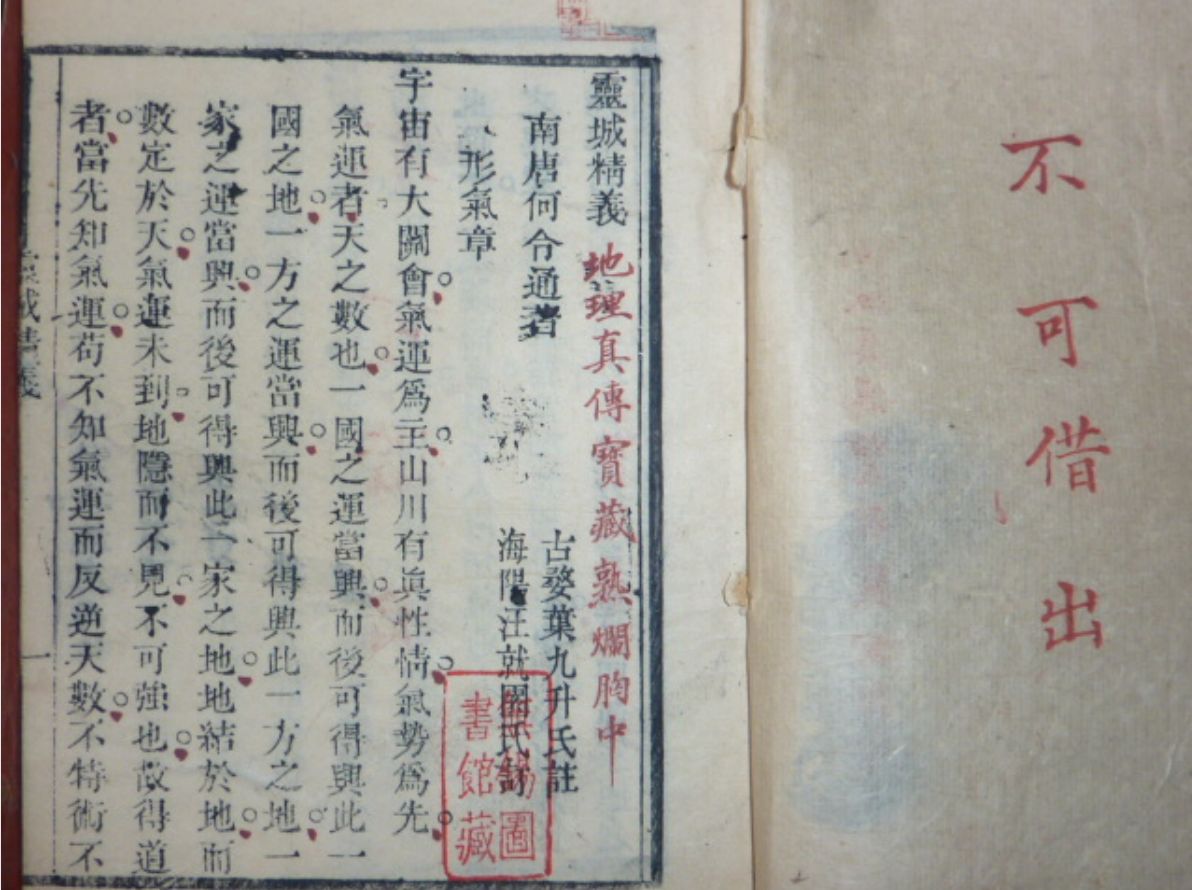 不可借出
靈城精義
地理真傳寶藏熟爛胸中
南唐何令通著
古婺葉九升氏註
海陽汪就圖氏訂
形氣章
宇宙有大關會氣運為主山川有眞性情氣勢為先
氣運者天之數也一國之運當興而後可得興此一
國之地一方之運當興而後可得興此一方之地一
家之運當興而後可得興此一家之地地結於地而
數定於天氣運未到地隱而不見不可強也故得道
者當先知氣運苟不知氣運而反逆天數不特術不
圖
書館藏
靈城精義
一